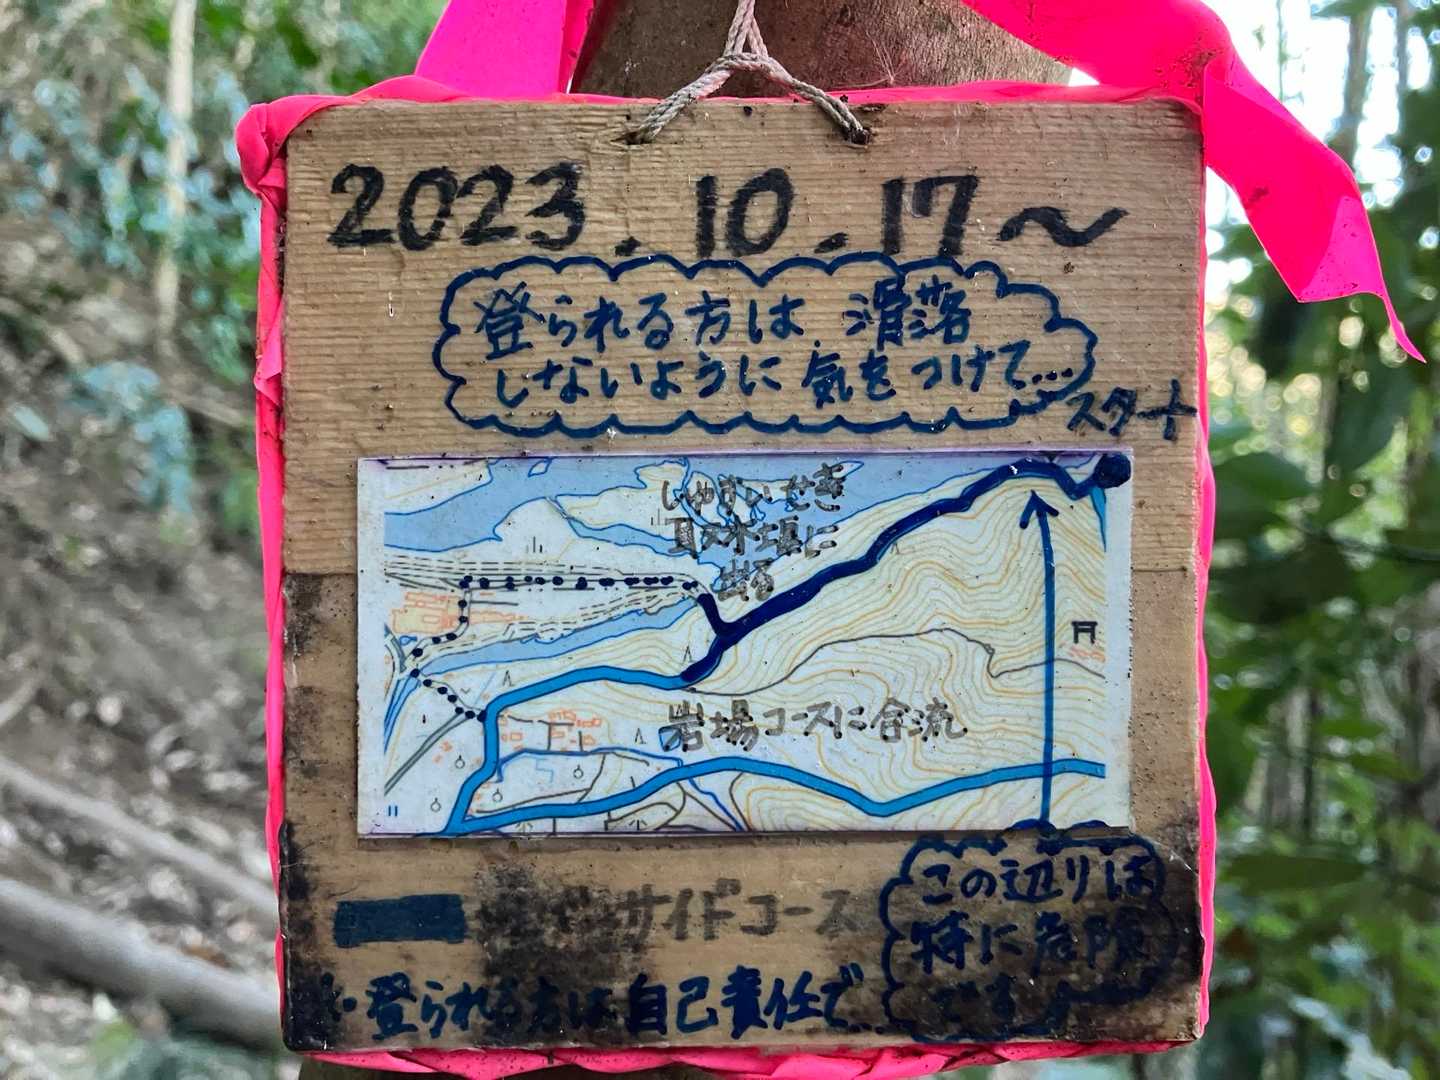 2023.10.17～
登られる方は、滑落
しないように気をつけて…
スタート
しゅかいせき
取水場に
出る
岩場コースに合流
サイドコース
この辺りは
特に危険
です
登られる方は自己責任で…